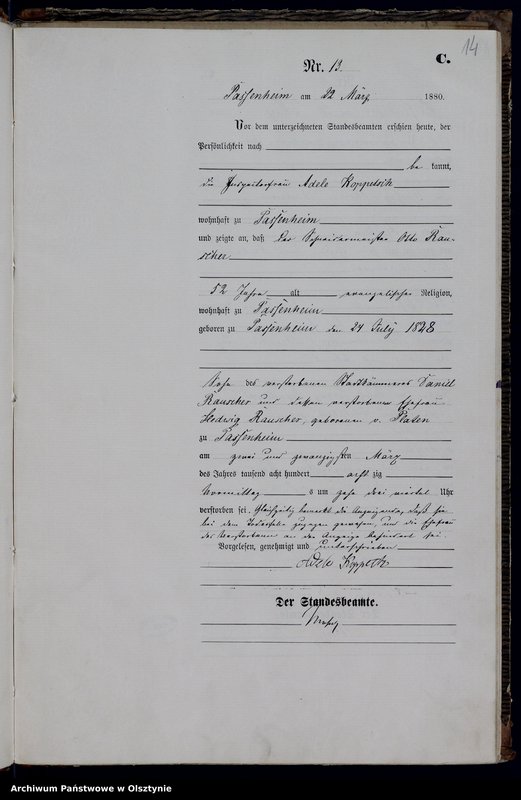 14
C.
Nr. 13.
Passenheim am 22 März 1880.
Vor dem unterzeichneten Standesbeamten erschien heute, der
Persönlichkeit nach
be kannt,
die Adele Koppetsch
wohnhaft zu Passenheim
und zeigte an, daß der Otto Rau-
scher
52 Jahre alt evangelischer Religion,
wohnhaft zu Passenheim
geboren zu Passenheim den 24 July 1828
Sohn des verstorbenen Stadtkämmerers Daniel
Rauscher und dessen verstorbenen Ehefrau
Hedwig Rauscher, geborenen v. Platen
zu Passenheim
am zwei und zwanzigsten März
des Jahres tausend acht hundert acht zig
Vormittags um zehn drei viertel Uhr
verstorben sei. Gleichzeitig bemerkt die Anzeigende, daß sie
bei dem Todesfalle zugegen gewesen, und die Ehefrau
des Verstorbenen an der Anzeige behindert sei.
Vorgelesen, genehmigt und unterschrieben
Adele Koppetsch
Der Standesbeamte.
Archiwum Państwowe w Olsztynie